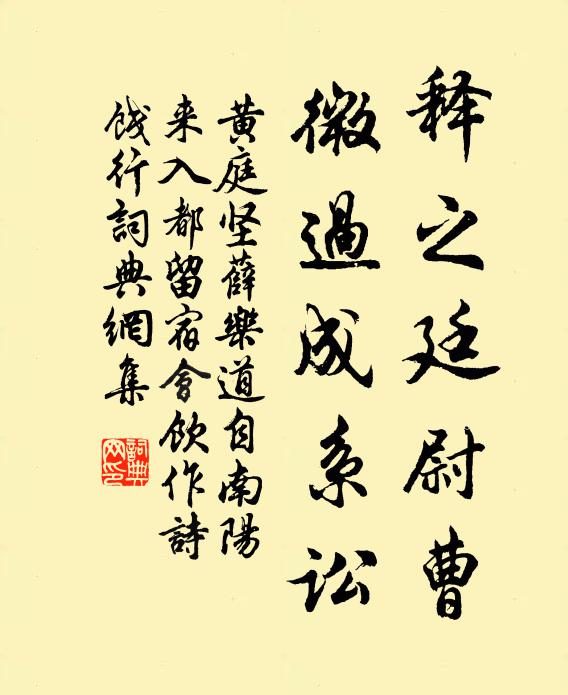 释之廷尉曹
微過成系訟
黄庭坚薛樂道自南陽
来入都留宿會飲作詩
餞行詞典網集
詞典网印